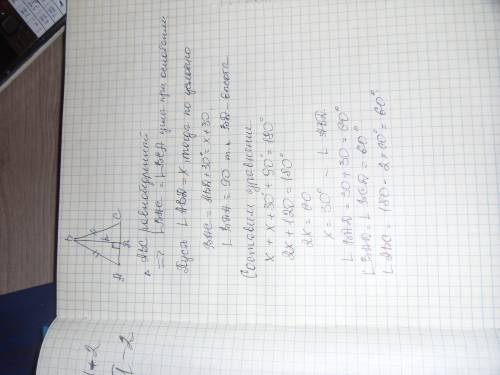 B
A D C
Δ ABC равнобедренный
=> ∠BAC = ∠BCA углы при основании
Пусть ∠ABD = x, тогда по условию
BAC = ABD + 30° = x + 30
∠BDA = 90 т.к. BD - высота
Составим уравнение
x + x + 30° + 90° = 180°
2x + 120 = 180°
2x = 60
x = 30° - ∠ABD
∠BAD = 30 + 30 = 60°
∠BAD = ∠BCD = 60°
∠ABC = 180 - 2x60° = 60°